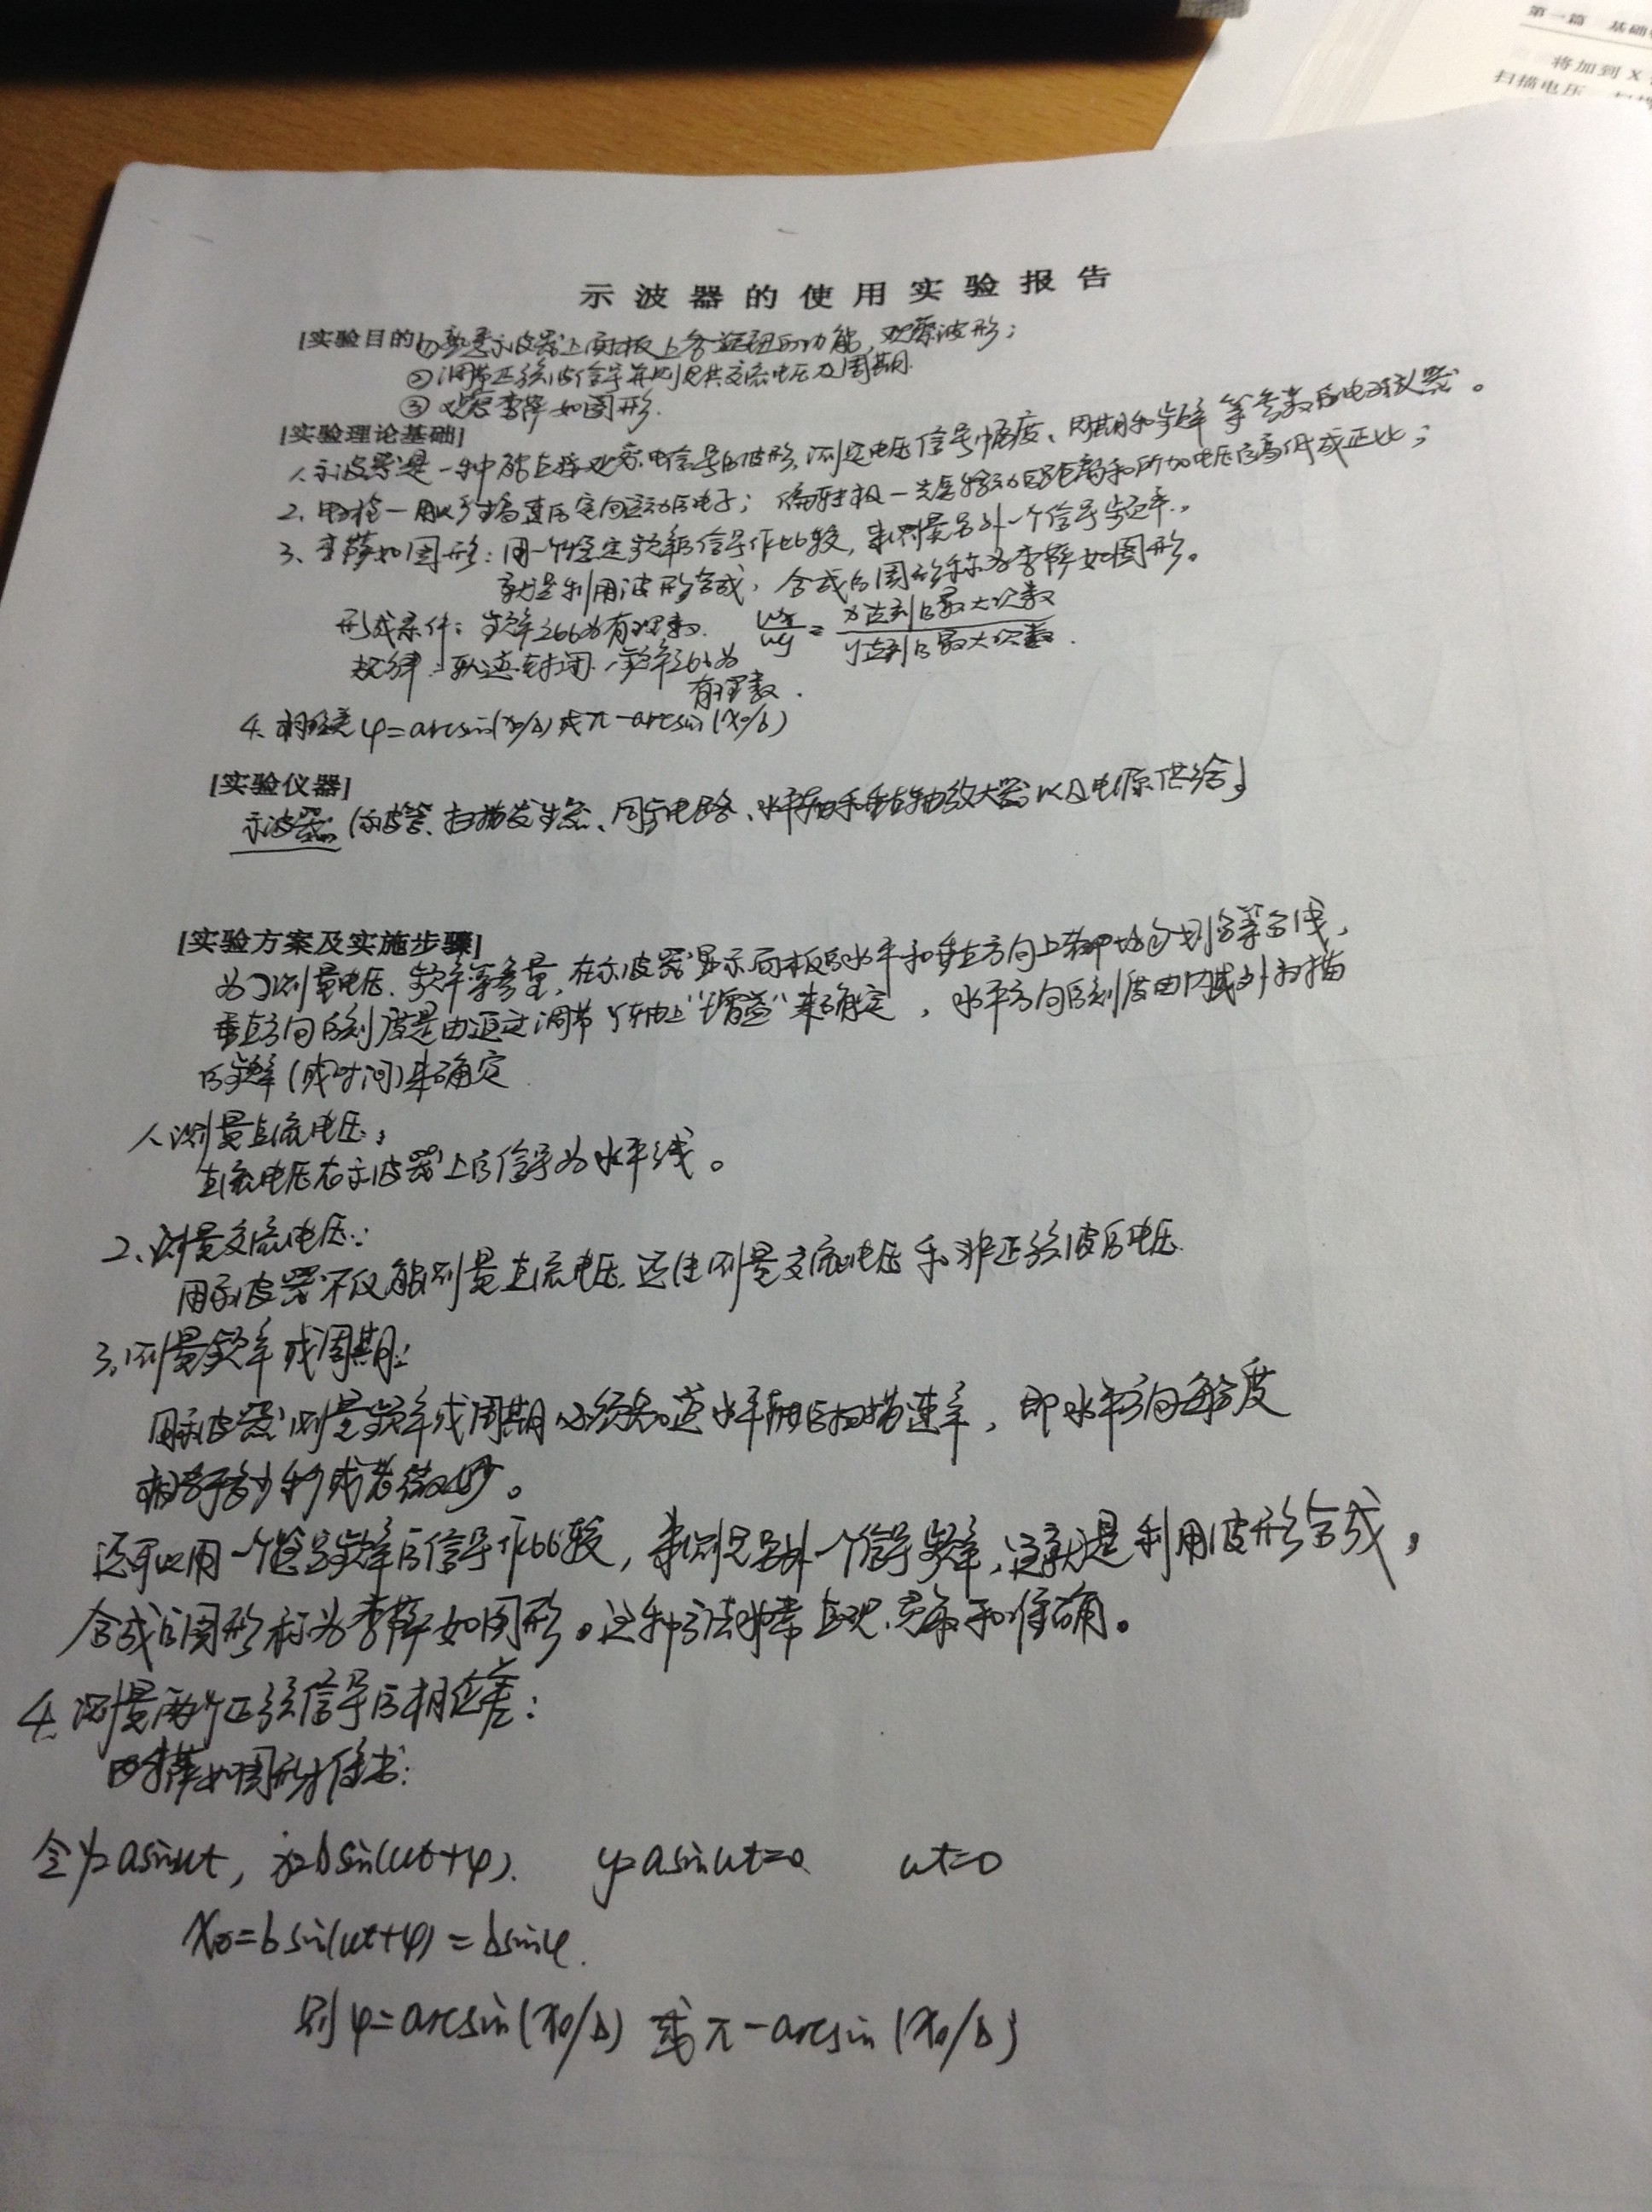 第一篇 基础
将加到 X
扫描电压
示波器的使用实验报告
[实验目的] ①熟悉示波器上面板上各旋钮的功能,观察波形;
②调节正弦波信号并测定其交流电压及周期.
③观察李萨如图形.
[实验理论基础]
1、示波器是一种能直接观察电信号的波形,测定电压信号幅度、周期和频率等参数的电子仪器。
2、电子枪—用以产生高速的定向运动的电子; 偏转极—光点移动的距离和所加电压的高低成正比;
3、李萨如图形:用一个恒定频率的信号作比较,来测量另外一个信号频率,
就是利用波形合成,合成的图形称为李萨如图形。
形成条件:频率之比为有理数. ωx/ωy = x达到的最大次数/y达到的最大次数.
规律:轨迹封闭,频率之比为
有理数.
4、相位差φ=arcsin(x₀/b)或π-arcsin(x₀/b)
[实验仪器]
示波器(示波管、扫描发生器、同步电路、水平轴和垂直轴放大器以及电源供给)
[实验方案及实施步骤]
为了测量电压、频率等参量,在示波器显示面板的水平和垂直方向上都均匀划分等分线,
垂直方向的刻度是由通过调节Y轴上"增益"来确定,水平方向的刻度由内或外扫描
的频率(或时间)来确定
1、测量直流电压:
直流电压在示波器上的信号为水平线。
2、测量交流电压:
用示波器不仅能测量直流电压,还能测量交流电压和非正弦波的电压.
3、测量频率或周期:
用示波器测量频率或周期必须知道水平轴的扫描速率,即水平方向每分度
相当于多少秒或者微秒。
还可以用一个恒定频率的信号作比较,来测定另外一个信号频率,这就是利用波形合成,
合成的图形称为李萨如图形。这种方法非常直观、简单和准确。
4、测量两个正弦信号的相位差:
由李萨如图形才得出:
令y=asinωt, x=bsin(ωt+φ). y=asinωt=0 ωt=0
x₀=bsin(ωt+φ)=bsinφ.
则φ=arcsin(x₀/b) 或π-arcsin(x₀/b)